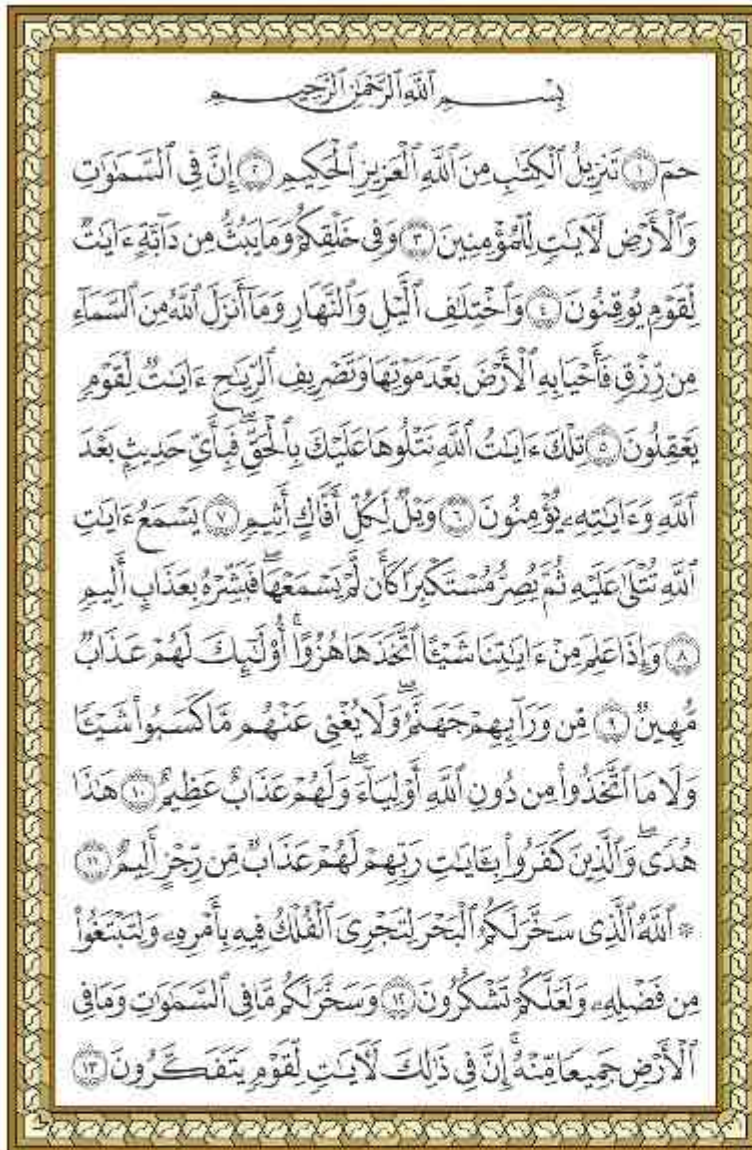 بِسْمِ ٱللَّهِ ٱلرَّحْمَٰنِ ٱلرَّحِيمِ
حمٓ ١ تَنزِيلُ ٱلْكِتَٰبِ مِنَ ٱللَّهِ ٱلْعَزِيزِ ٱلْحَكِيمِ ٢ إِنَّ فِى ٱلسَّمَٰوَٰتِ
وَٱلْأَرْضِ لَءَايَٰتٍ لِّلْمُؤْمِنِينَ ٣ وَفِى خَلْقِكُمْ وَمَا يَبُثُّ مِن دَآبَّةٍ ءَايَٰتٌ
لِّقَوْمٍ يُوقِنُونَ ٤ وَٱخْتِلَٰفِ ٱلَّيْلِ وَٱلنَّهَارِ وَمَآ أَنزَلَ ٱللَّهُ مِنَ ٱلسَّمَآءِ
مِن رِّزْقٍ فَأَحْيَا بِهِ ٱلْأَرْضَ بَعْدَ مَوْتِهَا وَتَصْرِيفِ ٱلرِّيَٰحِ ءَايَٰتٌ لِّقَوْمٍ
يَعْقِلُونَ ٥ تِلْكَ ءَايَٰتُ ٱللَّهِ نَتْلُوهَا عَلَيْكَ بِٱلْحَقِّ ۖ فَبِأَىِّ حَدِيثٍۭ بَعْدَ
ٱللَّهِ وَءَايَٰتِهِۦ يُؤْمِنُونَ ٦ وَيْلٌ لِّكُلِّ أَفَّاكٍ أَثِيمٍ ٧ يَسْمَعُ ءَايَٰتِ
ٱللَّهِ تُتْلَىٰ عَلَيْهِ ثُمَّ يُصِرُّ مُسْتَكْبِرًا كَأَن لَّمْ يَسْمَعْهَا ۖ فَبَشِّرْهُ بِعَذَابٍ أَلِيمٍ
٨ وَإِذَا عَلِمَ مِنْ ءَايَٰتِنَا شَيْـًٔا ٱتَّخَذَهَا هُزُوًا ۚ أُو۟لَٰٓئِكَ لَهُمْ عَذَابٌ
مُّهِينٌ ٩ مِّن وَرَآئِهِمْ جَهَنَّمُ ۖ وَلَا يُغْنِى عَنْهُم مَّا كَسَبُوا۟ شَيْـًٔا
وَلَا مَا ٱتَّخَذُوا۟ مِن دُونِ ٱللَّهِ أَوْلِيَآءَ ۖ وَلَهُمْ عَذَابٌ عَظِيمٌ ١٠ هَٰذَا
هُدًى ۖ وَٱلَّذِينَ كَفَرُوا۟ بِـَٔايَٰتِ رَبِّهِمْ لَهُمْ عَذَابٌ مِّن رِّجْزٍ أَلِيمٌ ١١
۞ ٱللَّهُ ٱلَّذِى سَخَّرَ لَكُمُ ٱلْبَحْرَ لِتَجْرِىَ ٱلْفُلْكُ فِيهِ بِأَمْرِهِۦ وَلِتَبْتَغُوا۟
مِن فَضْلِهِۦ وَلَعَلَّكُمْ تَشْكُرُونَ ١٢ وَسَخَّرَ لَكُم مَّا فِى ٱلسَّمَٰوَٰتِ وَمَا فِى
ٱلْأَرْضِ جَمِيعًا مِّنْهُ ۚ إِنَّ فِى ذَٰلِكَ لَءَايَٰتٍ لِّقَوْمٍ يَتَفَكَّرُونَ ١٣